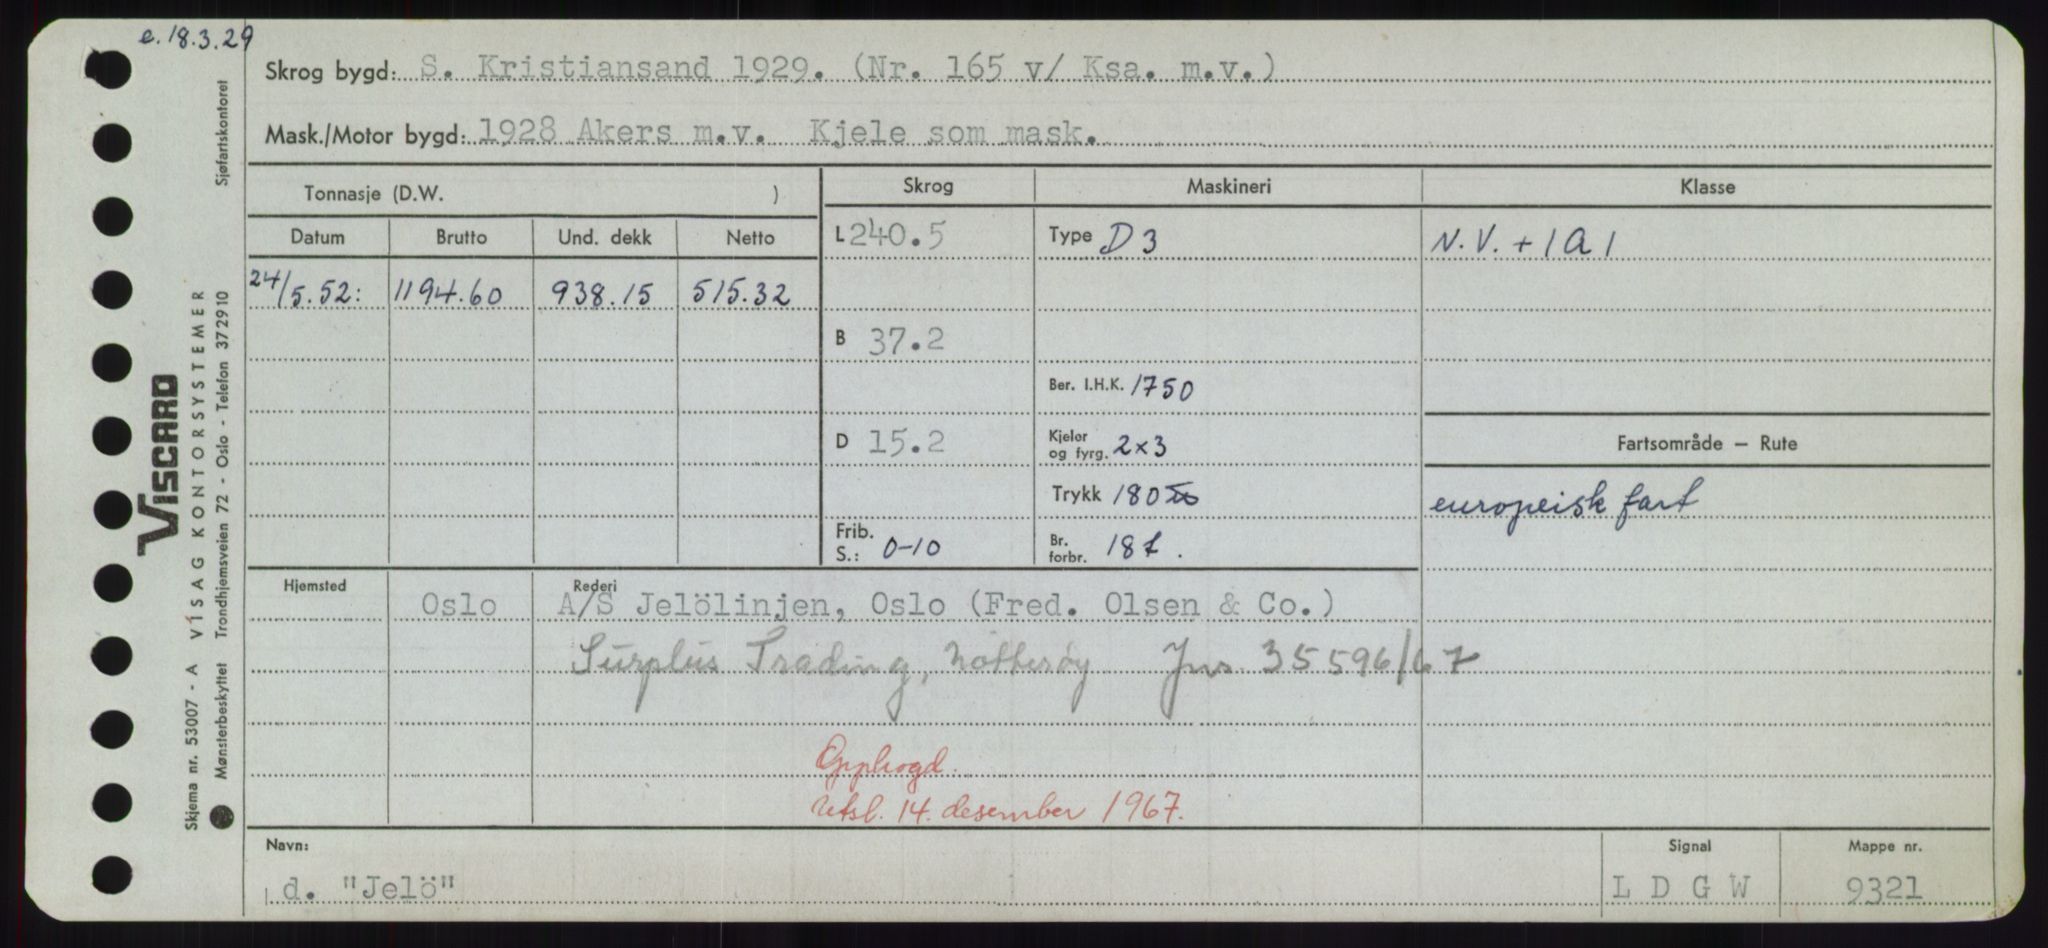 e. 18.3.29
Skrog bygd: S. Kristiansand 1929. (Nr. 165 v/ Ksa. m.v.)
Mask./Motor bygd: 1928 Akers m.v. Kjele som mask.
Tonnasje (D.W. )
Skrog
Maskineri
Klasse
Datum
Brutto
Und. dekk
Netto
L 240.5
Type D 3
N.V. + 1 A 1
24/5.52:
1194.60
938.15
515.32
B 37.2
Ber. I.H.K. 1750
D 15.2
Kjeler
og fyrg. 2x3
Fartsområde — Rute
Trykk 180
europeisk fart
Frib.
S.: 0-10
Br.
forbr. 18 t.
Hjemsted
Rederi
Oslo
A/S Jelölinjen, Oslo (Fred. Olsen & Co.)
Surplus Trading, Nötteröy Jnr. 35596/67
Opphogd.
Utsl. 14. desember 1967.
Navn:
d. "Jelö"
Signal
L D G W
Mappe nr.
9321
VISCARD
Skjema nr. 53007 - A VISAG KONTORSYSTEMER
Mønsterbeskyttet Trondhjemsveien 72 - Oslo - Telefon 372910
Sjøfartskontoret